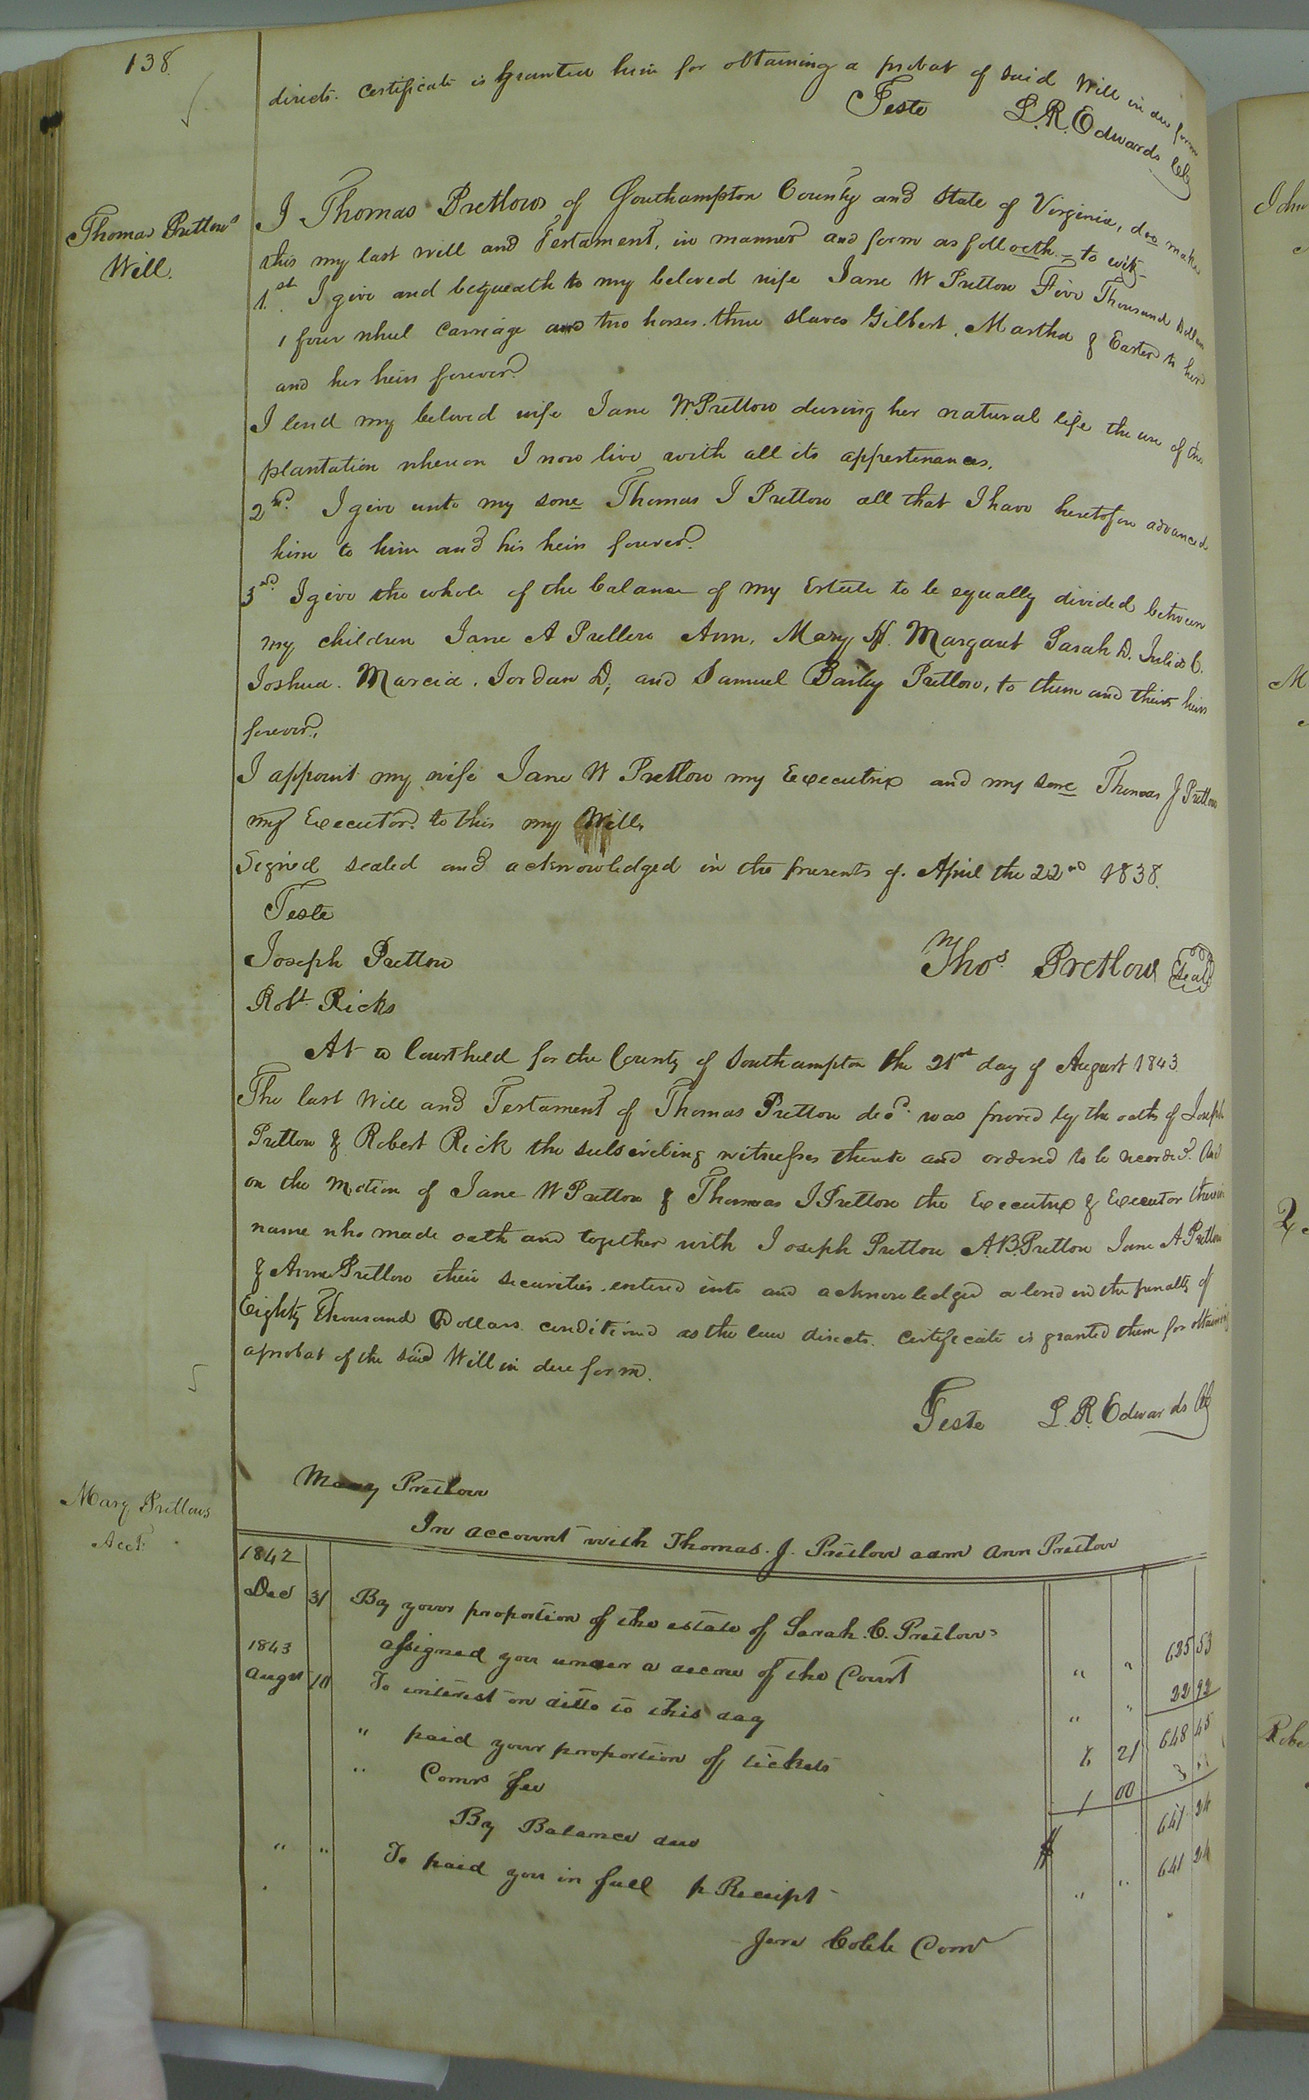 138.
directs. Certificate is granted him for obtaining a probat of said Will in due form
Teste L. R. Edwards Clk
Thomas Pretlow's
Will.
I Thomas Pretlow of Southampton County and State of Virginia, doe make
this my last will and Testament, in manner and form as followeth = to wit,
1st. I give and bequeath to my beloved wife Jane W Pretlow Five Thousand Dollars
1 four wheel Carriage and two horses. three slaves Gilbert, Martha & Easter to her
and her heirs forever.
I lend my beloved wife Jane W Pretlow during her natural life the use of the
plantation whereon I now live with all its appertenances.
2nd. I give unto my sone Thomas J Pretlow all that I have heretofore advanced
him to him and his heirs forever.
3rd. I give the whole of the balance of my Estate to be equally divided between
my children Jane A Pretlow Ann, Mary H. Margaret Sarah D. Julia C.
Joshua. Marcia. Jordan D, and Samuel Bailey Pretlow, to them and theirs heirs
forever.
I appoint my wife Jane W Pretlow my Executrix and my sone Thomas J Pretlow
my Executor. to this my Will.
Signed sealed and acknowledged in the presents of. April the 22nd 1838.
Teste
Joseph Pretlow Thos. Pretlow Seal
Robt. Ricks
At a Court held for the County of Southampton the 21st day of August 1843.
The last Will and Testament of Thomas Pretlow decd. was proved by the oath of Joseph
Pretlow & Robert Rick the subscribing witnesses thereto and ordered to be recorded. And
on the Motion of Jane W Pretlow & Thomas J Pretlow the Executrix & Executor therein
name who made oath and together with Joseph Pretlow A. B. Pretlow Jane A Pretlow
& Ann Pretlow their securities. entered into and acknowledged a bond in the penalty of
Eighty Thousand Dollars conditioned as the law directs. Certificate is granted them for obtaining
a probat of the said Will in due form.
Teste L. R. Edwards Clk
Mary Pretlows
Acct.
Mary Pretlow
In account with Thomas. J. Pretlow adm Ann Pretlow
1842
Dec 31 By your proportion of the estate of Sarah. C. Pretlow=
assigned you under a decree of the Court " " 625 53
1843
Augst 10 To interest on ditto to this day " " 22 92
" paid your proportion of tickets 21 648 45
" Comrs fee 1 00 3
By Balance due $ 24
" " To paid you in full pr Receipt " " 641 24
Jere Cobb Comr